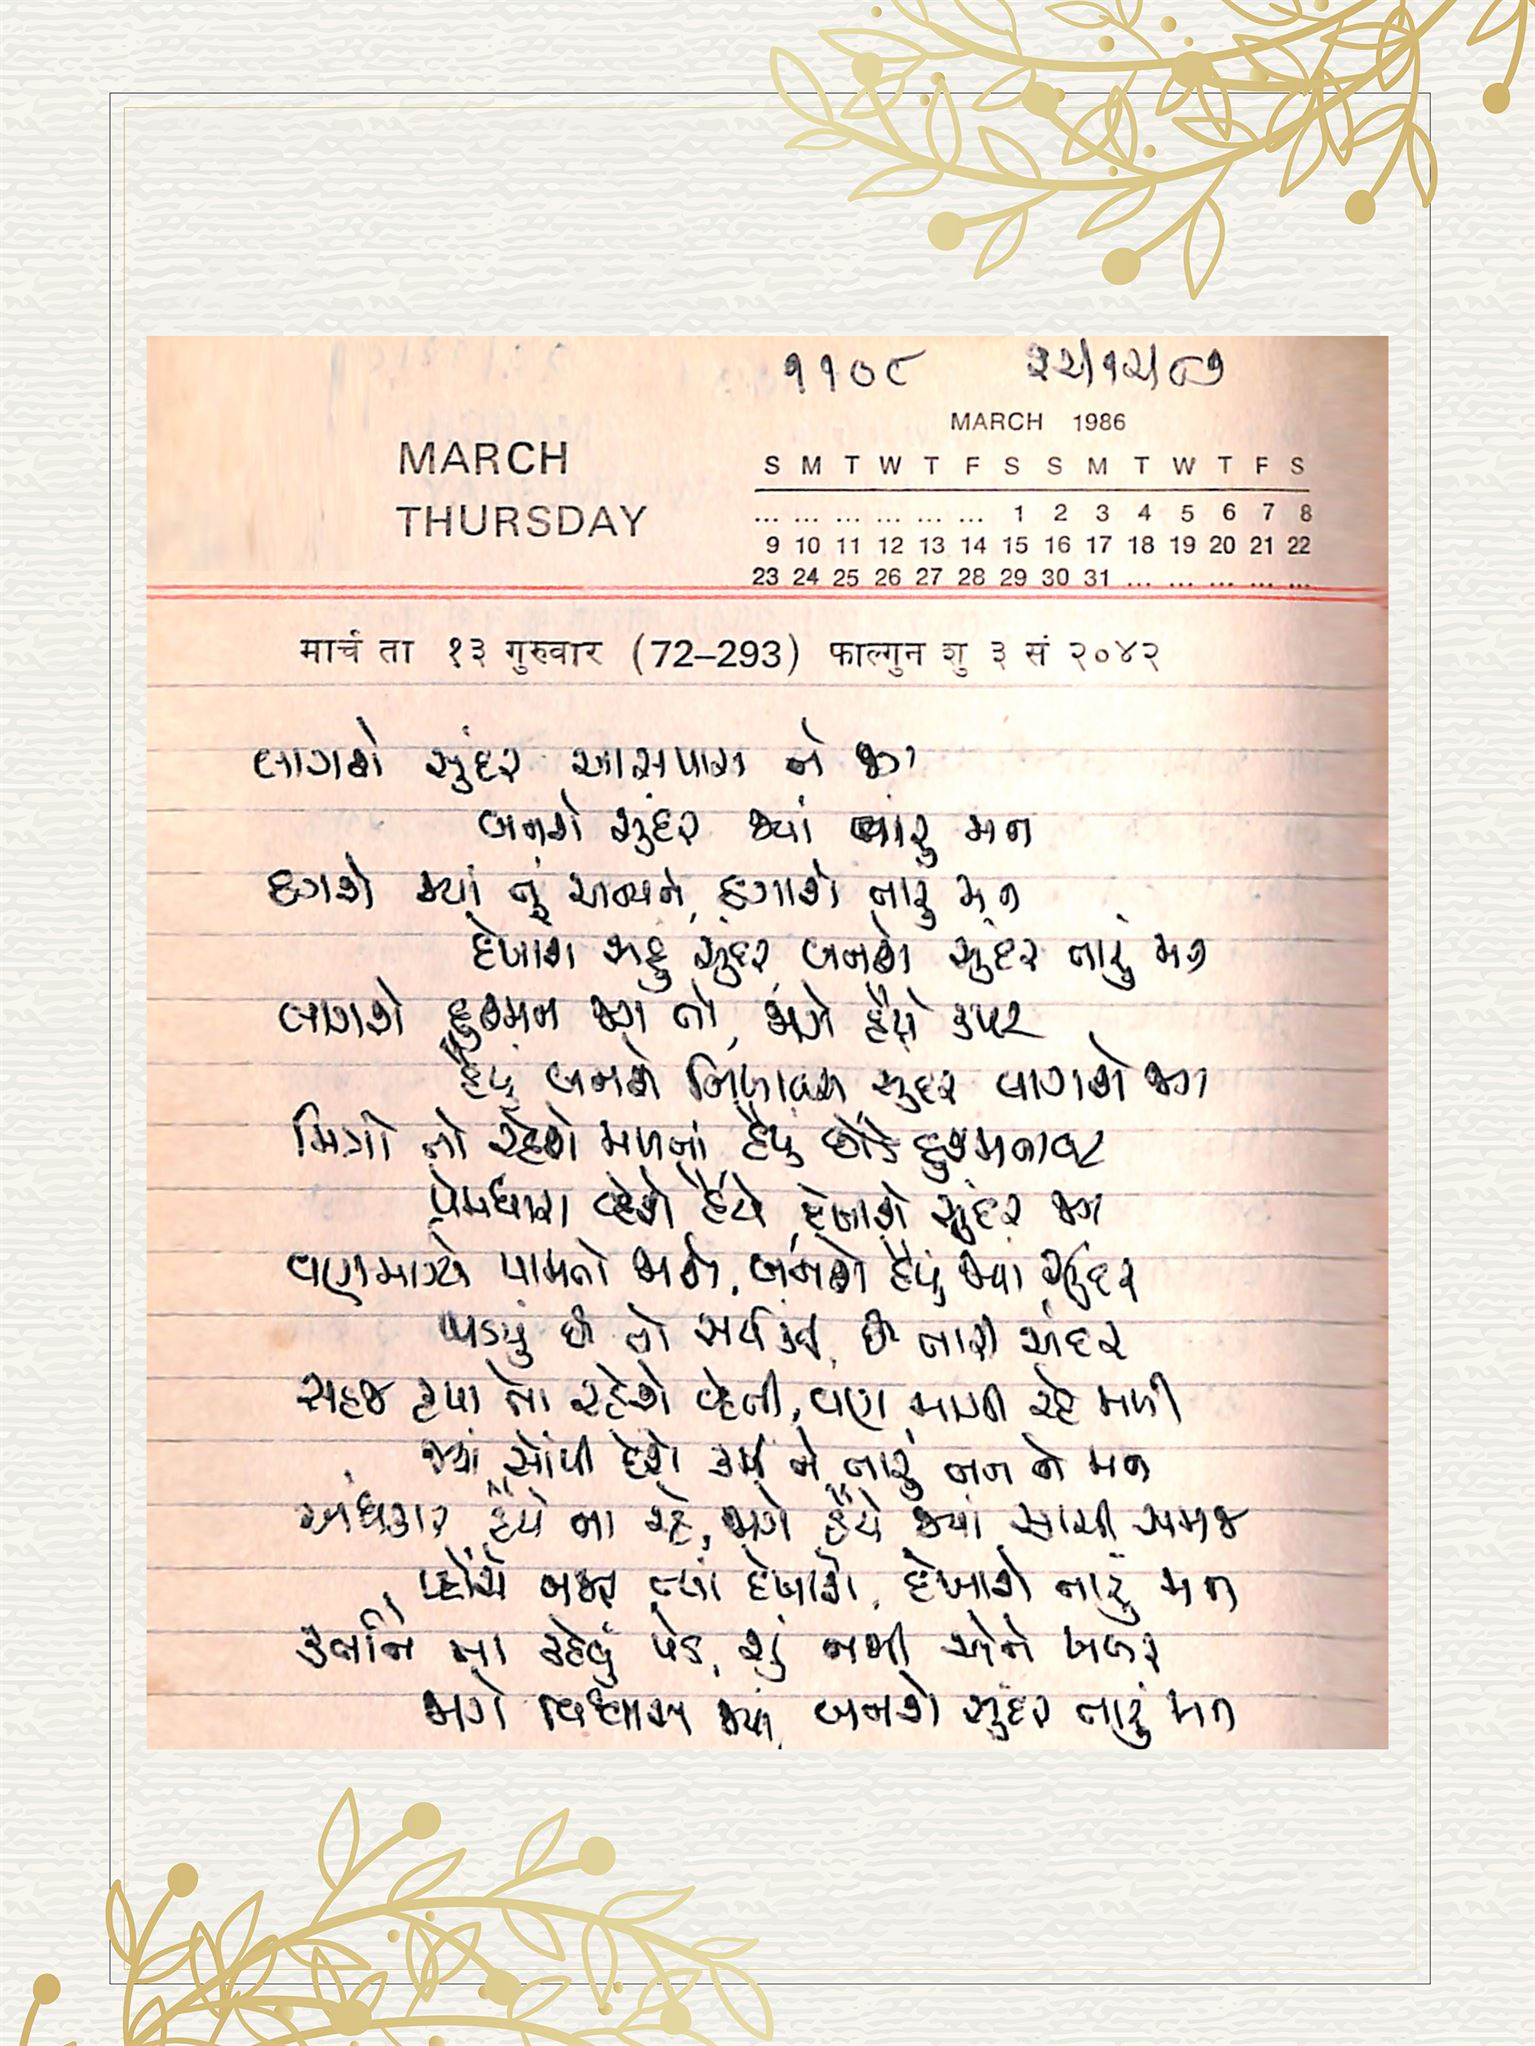 ૧૧૦૮ ૨૨/૧૨/૮૭
MARCH 1986
MARCH
THURSDAY
S M T W T F S S M T W T F S
... ... ... ... ... ... 1 2 3 4 5 6 7 8
9 10 11 12 13 14 15 16 17 18 19 20 21 22
23 24 25 26 27 28 29 30 31 ... ... ... ... ...
मार्च ता १३ गुरुवार (72–293) फाल्गुन शु ३ सं २०४२
લાગશે સુંદર આસપાસ ને જગ
બનશે સુંદર જ્યાં તારું મન
ઠગશે જ્યાં તું અન્યને, ઠગાશે તારું મન
દેખાશે બધું સુંદર બનશે સુંદર તારું મન
લાગશે દુશ્મન જગ તો, જાગે હૈયે કપટ
હૈયું બનશે નિખાલસ સુંદર લાગશે જગ
મિત્રો તો રહેશે મળતાં હૈયું છોડે દુશ્મનાવટ
પ્રેમધારા વ્હેશે હૈયે, દેખાશે સુંદર જગ
વણમાગ્યે પામતો જાશે, બનશે હૈયું જ્યાં સુંદર
પડ્યું છે તો સર્વ કંઈ, છે તારી અંદર
સહજ કૃપા તો રહેશે વ્હેતી, વણ માગી રહે મળી
જ્યાં સોંપી દેશે કર્મ ને તારું તન ને મન
અંધકાર હૈયે ના રહે, જાગે હૈયે જ્યાં સાચી સમજ
પ્હોંચે નજર ત્યાં દેખાશે, દેખાશે તારું મન
કર્તાને ના કહેવું પડે, શું નથી એને ખબર
જાગે વિશ્વાસ જ્યાં, બનશે સુંદર તારું મન